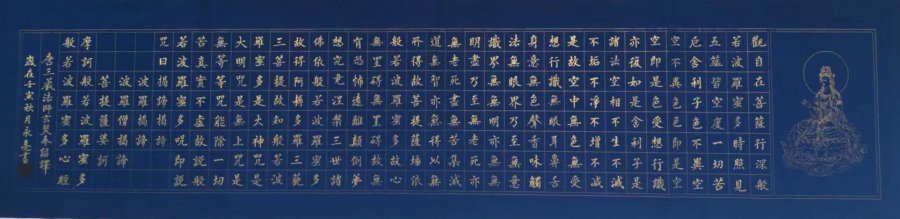 觀自在菩薩行深般
若波羅蜜多時照見
五蘊皆空度一切苦
厄舍利子色不異空
空不異色色即是空
空即是色受想行識
亦復如是舍利子是
諸法空相不生不滅
不垢不淨不增不減
是故空中無色無受
想行識無眼耳鼻舌
身意無色聲香味觸
法無眼界乃至無意
識界無無明亦無無
明盡乃至無老死亦
無老死盡無苦集滅
道無智亦無得以無
所得故菩提薩埵依
般若波羅蜜多故心
無罣礙無罣礙故無
有恐怖遠離顛倒夢
想究竟涅槃三世諸
佛依般若波羅蜜多
故得阿耨多羅三藐
三菩提故知般若波
羅蜜多是大神咒是
大明咒是無上咒是
無等等咒能除一切
苦真實不虛故說般
若波羅蜜多咒即說
咒曰揭諦揭諦
波羅揭諦
波羅僧揭諦
菩提薩婆訶
摩訶般若波羅蜜多
般若波羅蜜多心經
唐三藏法師玄奘奉詔譯
歲在壬寅秋月永亮書